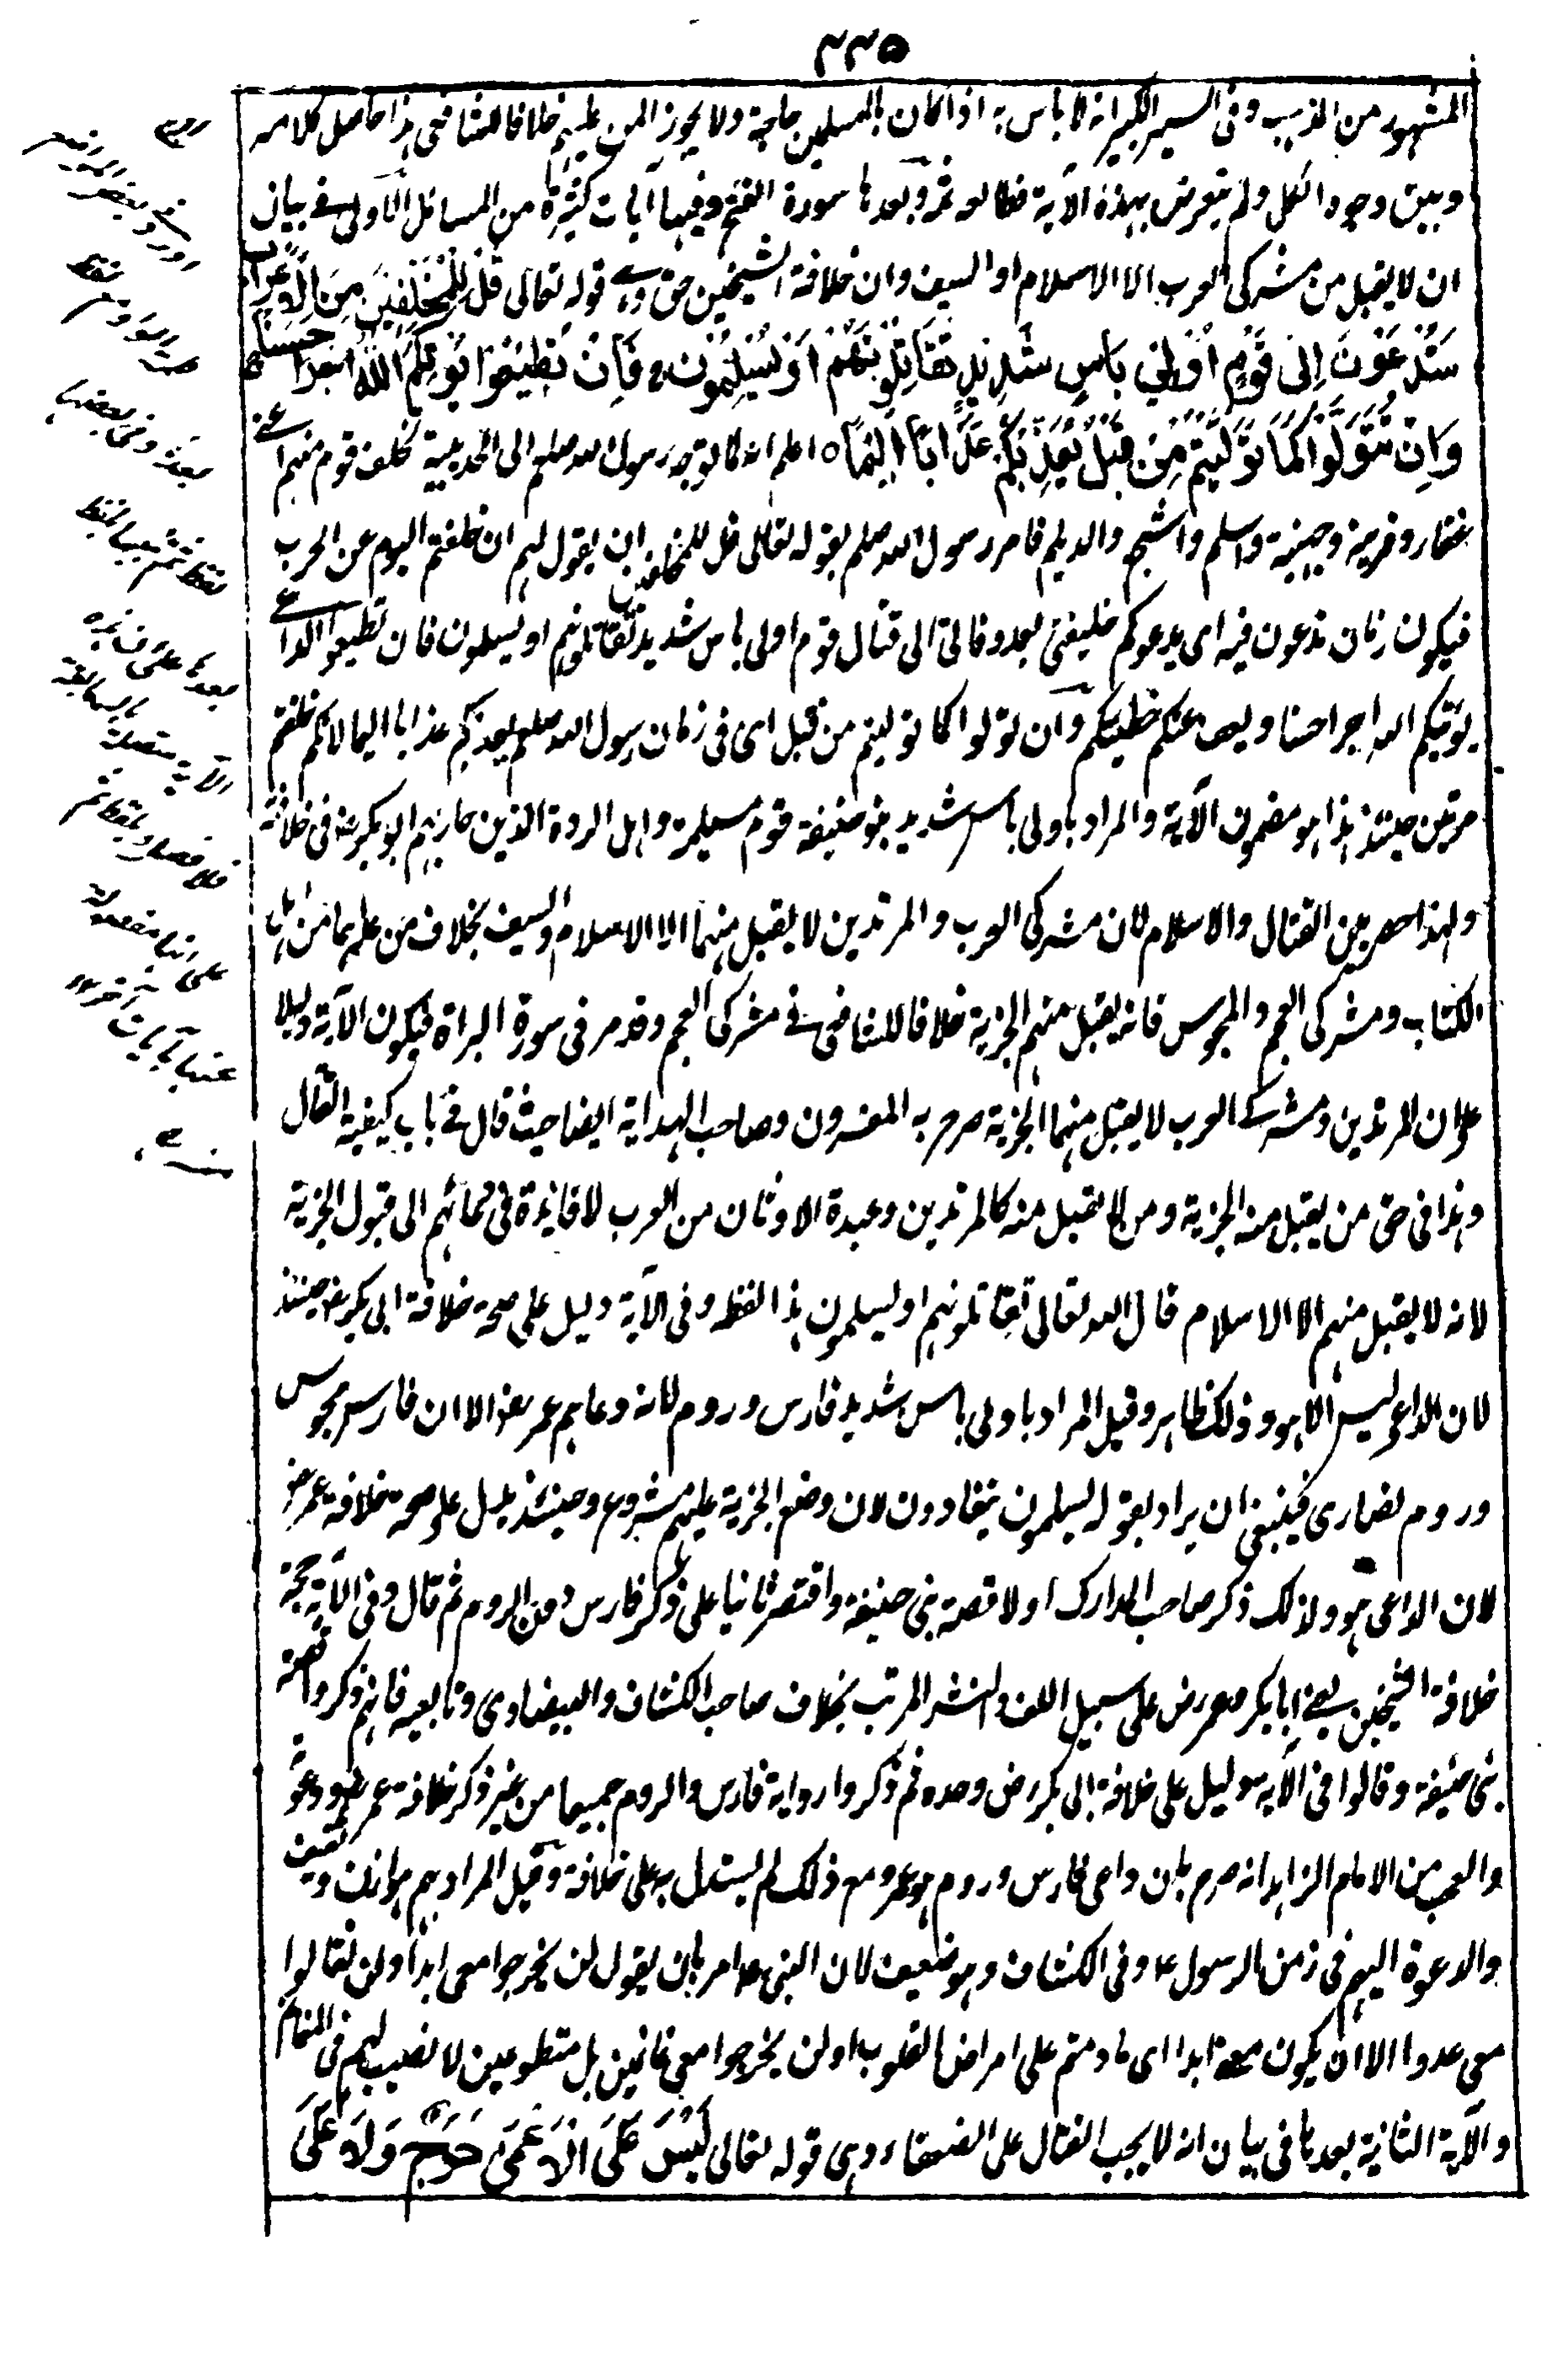 ٢٣٥
المشهور من المذهب وفى السير الكبير انه لا باس به اذا كان بالمسلمين حاجة ولا يجوز المن عليهم خلافا للشافعى هذا حاصل كلامه
وبين وجوه الكل ولم يتعرض بهذه الآية فطالعه ثمه وبعدها سورة الفتح وفيها آيات كثيرة من المسائل الاولى فى بيان
ان لا يقبل من مشركى العرب الا الاسلام او السيف وان خلافة الشيخين حق وهى قوله تعالى قُلْ لِلْمُخَلَّفِينَ مِنَ الْأَعْرَابِ
سَتُدْعَوْنَ إِلَى قَوْمٍ أُولِي بَاسٍ شَدِيدٍ تُقَاتِلُونَهُمْ أَوْ يُسْلِمُونَ فَإِنْ تُطِيعُوا يُؤْتِكُمُ اللَّهُ أَجْرًا حَسَنًا
وَإِنْ تَتَوَلَّوْا كَمَا تَوَلَّيْتُمْ مِنْ قَبْلُ يُعَذِّبْكُمْ عَذَابًا أَلِيمًا ○ اعلم انه لما توجه رسول الله صلعم الى الحديبية تخلف قوم منهم اعنى
غفار ومزينة وجهينة واسلم واشجع والديلم فامر رسول الله صلعم بقوله تعالى قل للمخلفين ان يقول لهم ان خلفتم اليوم عن الحرب
فيكون زمان تدعون فيه اى يدعوكم خليفتى بعد وفاتى الى قتال قوم اولى باس شديد تقاتلونهم او يسلمون فان تطيعوا الداعى
يؤتيكم الله اجرا حسنا ويعف عنكم خطيئتكم وان تولوا كما توليتم من قبل اى فى زمان رسول الله صلعم يعذبكم عذابا اليما لانكم خلفتم
مرتين حينئذ هذا هو مضمون الآية والمراد باولى باس شديد بنو حنيفة قوم مسيلمة واهل الردة الذين حاربهم ابو بكر رض فى خلافته
ولهذا حصر بين القتال والاسلام لان مشركى العرب والمرتدين لا يقبل منهما الا الاسلام او السيف بخلاف من عداهما من اهل
الكتاب ومشركى العجم والمجوس فانه يقبل منهم الجزية خلافا للشافعى فى مشركى العجم وقد مر فى سورة البراة فيكون الآية دليلا
على ان المرتدين ومشركى العرب لا يقبل منهما الجزية صرح به المفسرون وصاحب الهداية ايضا حيث قال فى باب كيفية القتال
وهذا فى حق من يقبل منه الجزية ومن لا تقبل منه كالمرتدين وعبدة الاوثان من العرب لا فائدة فى دعائهم الى قبول الجزية
لانه لا يقبل منهم الا الاسلام قال الله تعالى تقاتلونهم او يسلمون هذا لفظه وفى الآية دليل على صحة خلافة ابى بكر رض حينئذ
لان الداعى ليس الا هو وذلك ظاهر وقيل المراد باولى باس شديد فارس وروم لانه دعاهم عمر رض الا ان فارس مجوس
وروم نصارى فينبغى ان يراد بقوله يسلمون ينقادون لان وضع الجزية عليهم مشروع وحينئذ يدل على صحة خلافة عمر رض
لان الداعى هو ولذلك ذكر صاحب المدارك اولا قصة بنى حنيفة واقتصر ثانيا على ذكر فارس دون الروم ثم قال وفى الآية حجة
خلافة الشيخين يعنى ابا بكر وعمر رض على سبيل اللف والنشر المرتب بخلاف صاحب الكشاف والبيضاوى وتابعيه فانهم ذكروا قصة
بنى حنيفة وقالوا فى الآية دليل على خلافة ابى بكر رض وحده ثم ذكروا رواية فارس والروم جميعا من غير ذكر خلافة عمر رض ودعوته
والعجب من الامام الزاهد انه صرح بان داعى فارس وروم هو عمر ومع ذلك لم يستدل به على خلافة وقيل المراد بهم هوازن وثقيف
والدعوة اليهم فى زمن الرسول ع وفى الكشاف وهو ضعيف لان النبى ع امر بان يقول لن يخرجوا معى ابدا ولن تقاتلوا
معى عدوا الا ان يكون معناه ابدا اى ما دمتم على امراض القلوب او لن يخرجوا معى غانمين بل متطوعين لا نصيب لهم فى المغانم
والآية الثانية بعدها فى بيان انه لا يجب القتال على الضعفاء وهى قوله تعالى لَيْسَ عَلَى الْأَعْمَى حَرَجٌ وَلَا عَلَى